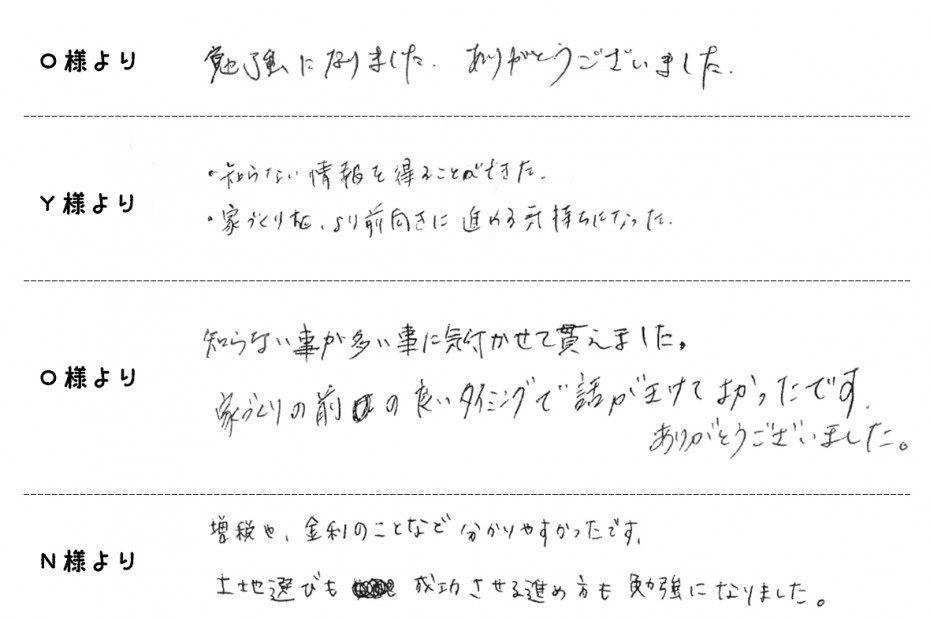 O様より
勉強になりました. ありがとうございました.
Y様より
・知らない情報を得ることができた.
・家づくりを、より前向きに進める気持ちになった.
O様より
知らない事が多い事に気付かせて貰えました。
家づくりの前の良いタイミングで話がきけてよかったです.
ありがとうございました。
N様より
増税や、金利のことなど分かりやすかったです.
土地選びも 成功させる進め方も勉強になりました。